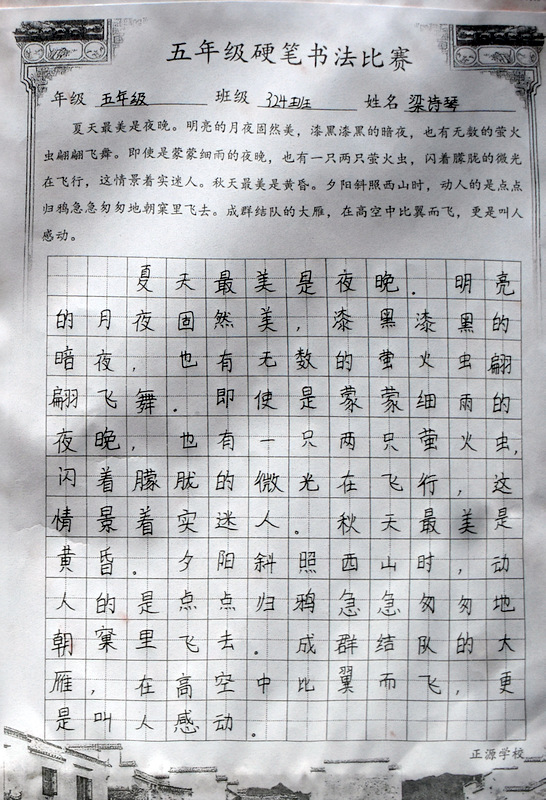 五年级硬笔书法比赛
年级 五年级 班级 324班 姓名 梁诗琴
夏天最美是夜晚。明亮的月夜固然美，漆黑漆黑的暗夜，也有无数的萤火
虫翩翩飞舞。即使是蒙蒙细雨的夜晚，也有一只两只萤火虫，闪着朦胧的微光
在飞行，这情景着实迷人。秋天最美是黄昏。夕阳斜照西山时，动人的是点点
归鸦急急匆匆地朝窠里飞去。成群结队的大雁，在高空中比翼而飞，更是叫人
感动。
夏天最美是夜晚。明亮
的月夜固然美，漆黑漆黑的
暗夜，也有无数的萤火虫翩
翩飞舞。即使是蒙蒙细雨的
夜晚，也有一只两只萤火虫，
闪着朦胧的微光在飞行，这
情景着实迷人。秋天最美是
黄昏。夕阳斜照西山时，动
人的是点点归鸦急急匆匆地
朝窠里飞去。成群结队的大
雁，在高空中比翼而飞，更
是叫人感动。
正源学校